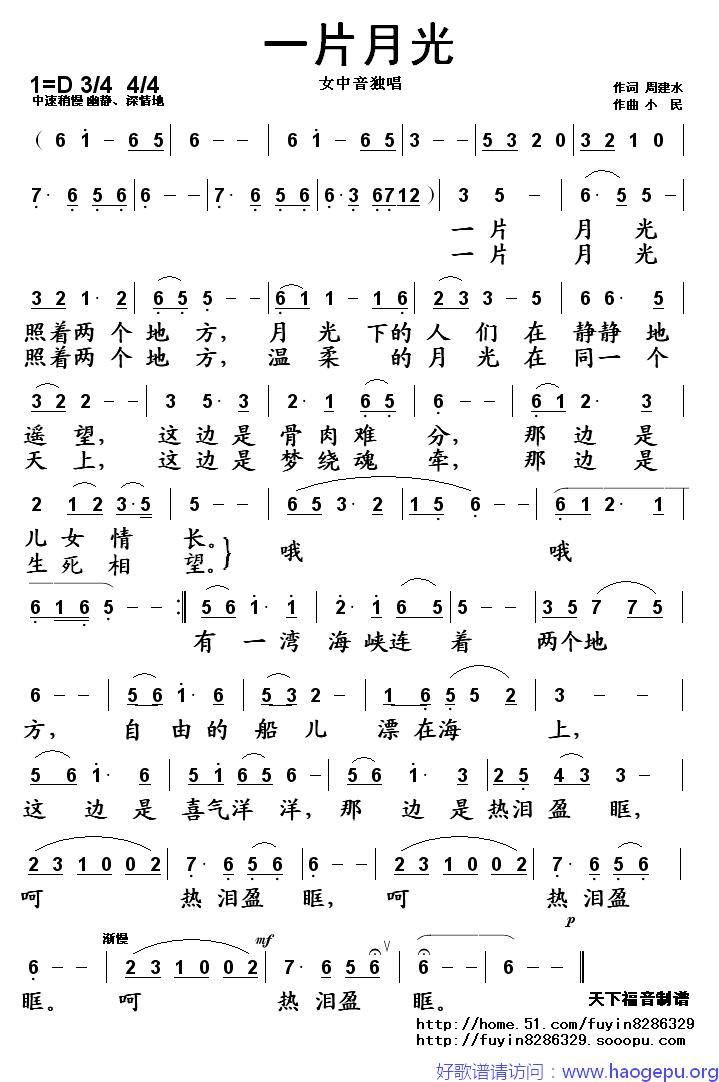 一片月光
1=D 3/4 4/4
女中音独唱
作词 周建水
中速稍慢 幽静、深情地
作曲 小 民
( 6 1 - 6 5 | 6 - - | 6 1 - 6 5 | 3 - - | 5 3 2 0 | 3 2 1 0 |
7· 6 5 6 | 6 - - | 7· 6 5 6 | 6·3 6712 ) | 3 5 - | 6· 5 5 |
一 片 月 光
一 片 月 光
3 2 1· 2 | 6 5 5 - - | 6 1 1 - 1 6 | 2 3 3 - - | 6 6· 5 |
照着两 个 地 方， 月 光 下的 人 们 在 静静 地
照着两 个 地 方， 温 柔 的 月 光 在 同一 个
3 2 2 - - | 3 5· 3 | 2· 1 6 5 | 6 - - | 6 1 2· 3 |
遥 望， 这 边 是 骨 肉 难 分， 那 边 是
天 上， 这 边 是 梦 绕 魂 牵， 那 边 是
2 1 2 3·5 | 5 - - | 6 5 3· 2 | 1 5 6 - - | 6 1 2· 1 |
儿 女 情 长。
生 死 相 望。
哦 哦
6 1 6 5 - - :|| 5 6 1· 1 | 2· 1 6 5 | 5 - - | 3 5 7 7 5 |
有 一 湾 海 峡连 着 两个地
6 - - | 5 6 1· 6 | 5 3 2 - | 1 6 5 5 2 | 3 - - |
方， 自 由 的 船 儿 漂 在海 上，
5 6 1· 6 | 5 1 6 5 6 - | 6 1 2· 3 | 2 5 4 3 3 |
这 边 是 喜气洋 洋， 那 边 是热泪 盈 眶，
2 3 1 0 0 2 | 7· 6 5 6 | 6 - - | 2 3 1 0 0 2 | 7· 6 5 6 |
呵 热 泪盈 眶， 呵 热 泪盈
p
渐慢
mf
6 - - | 2 3 1 0 0 2 | 7· 6 5 6 | 6 - - | 6 - - ||
眶。 呵 热 泪盈 眶。
天下福音制谱
http://home.51.com/fuyin8286329
http://fuyin8286329.sooopu.com
好歌谱请访问：www.haogepu.org